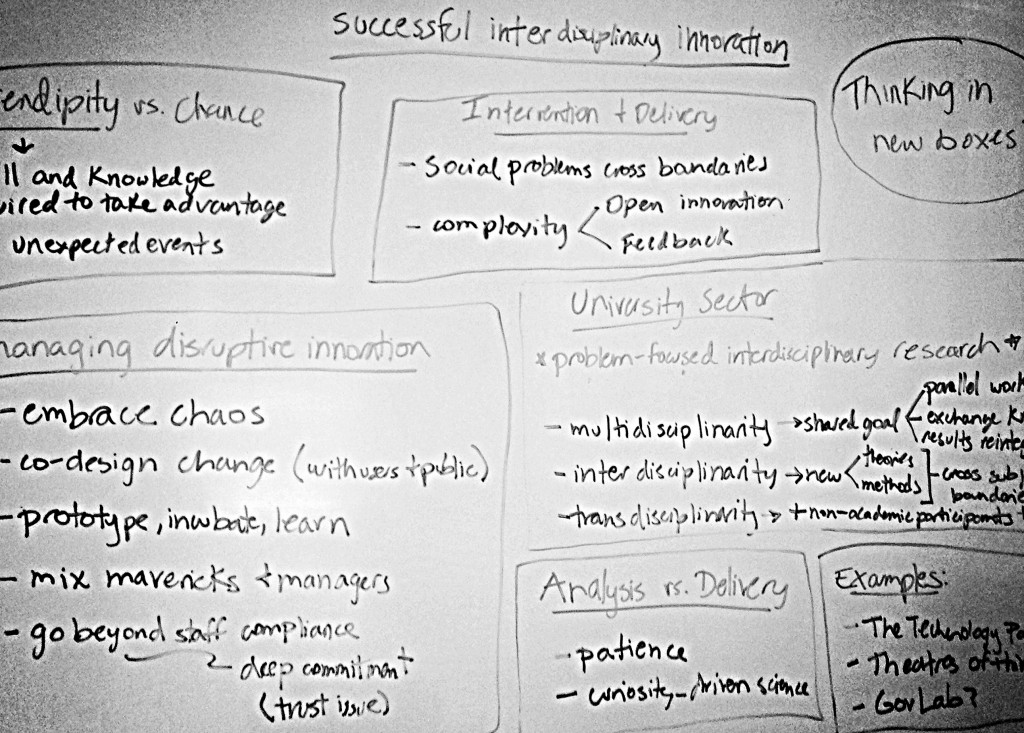 Successful interdisciplinary innovation
endipity vs. Chance
ll and Knowledge
ired to take advantage
unexpected events
Intervention + Delivery
- Social problems cross bandaries
- complexity
Open innovation
Feedback
Thinking in
new boxes
managing disruptive innovation
- embrace chaos
- co-design change (with users + public)
- prototype, incubate, learn
- mix mavericks + managers
- go beyond staff compliance
deep commitment
(trust issue)
University Sector
* problem-focused interdisciplinary research *
- multidisciplinarity → shared goal
parallel work
exchange K
results reinteg
- interdisciplinarity → new
theories
methods
cross subj
boundarie
- transdisciplinarity → + non-academic participants
Analysis vs. Delivery
- patience
- curiosity-driven science
Examples:
- The Technology
- Theatres of thi
- GovLab?